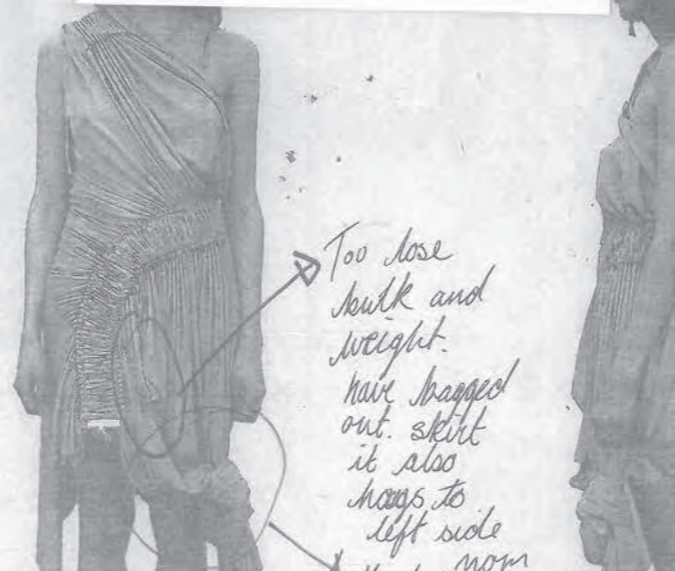 Too lose
bulk and
weight.
have bagged
out. skirt
it also
hags to
left side